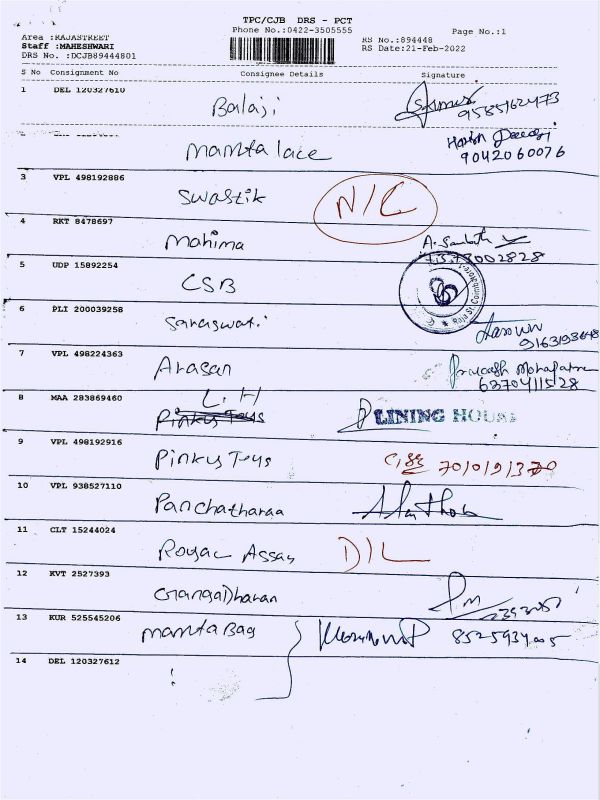 TPC/CJB DRS - PCT
Phone No.:0422-3505555
Page No.:1
Area :RAJASTREET
Staff :MAHESHWARI
DRS No. :DCJB89444801
RS No.:894448
RS Date:21-Feb-2022
S No Consignment No Consignee Details Signature
1 DEL 120327610
Balaji
9585162473
Mamta lace
9042060076
3 VPL 498192886
Swastik
N/C
4 RKT 8478697
Mahima
5 UDP 15892254
CSB
Raja St. Coimbatore-1
6 PLI 200039258
Saraswati
9163193648
7 VPL 498224363
Arasan
6370411528
8 MAA 283869460
L.H
Pinkys Toys
LINING HOUSE
9 VPL 498192916
Pinkys Toys
10 VPL 938527110
Panchatharaa
11 CLT 15244024
Royal Assay
D/L
12 KVT 2527393
Gangadharan
13 KUR 525545206
Mamta Bag
14 DEL 120327612